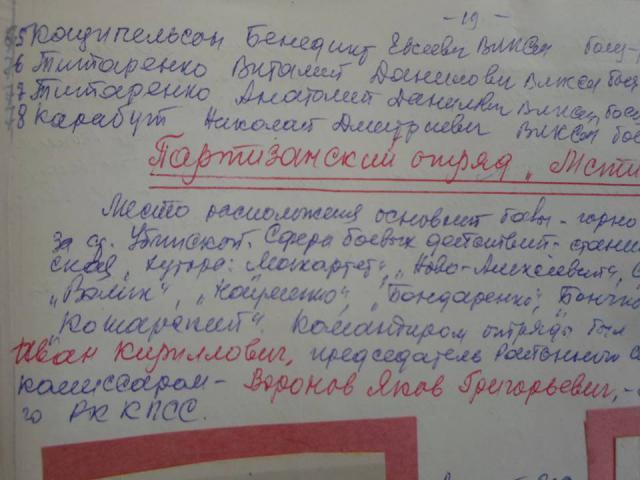 -19-
75 Кацнельсон Бенедикт Евсеевич ВЛКСМ боец-
76 Титаренко Виталий Данилович ВЛКСМ боец
77 Титаренко Анатолий Данилович ВЛКСМ, боец
78 Карабут Николай Дмитриевич ВЛКСМ боец
Партизанский отряд „Мсти
Место расположения основной базы - горно
за ст. Убинской. Сфера боевых действий - стани
ская, хутора: „Ново-Алексеевский",
„Бондаренко",
Командиром отряда был
Иван Кириллович, председатель Районного
комиссаром - Воронов Яков Григорьевич, -
го РК КПСС.